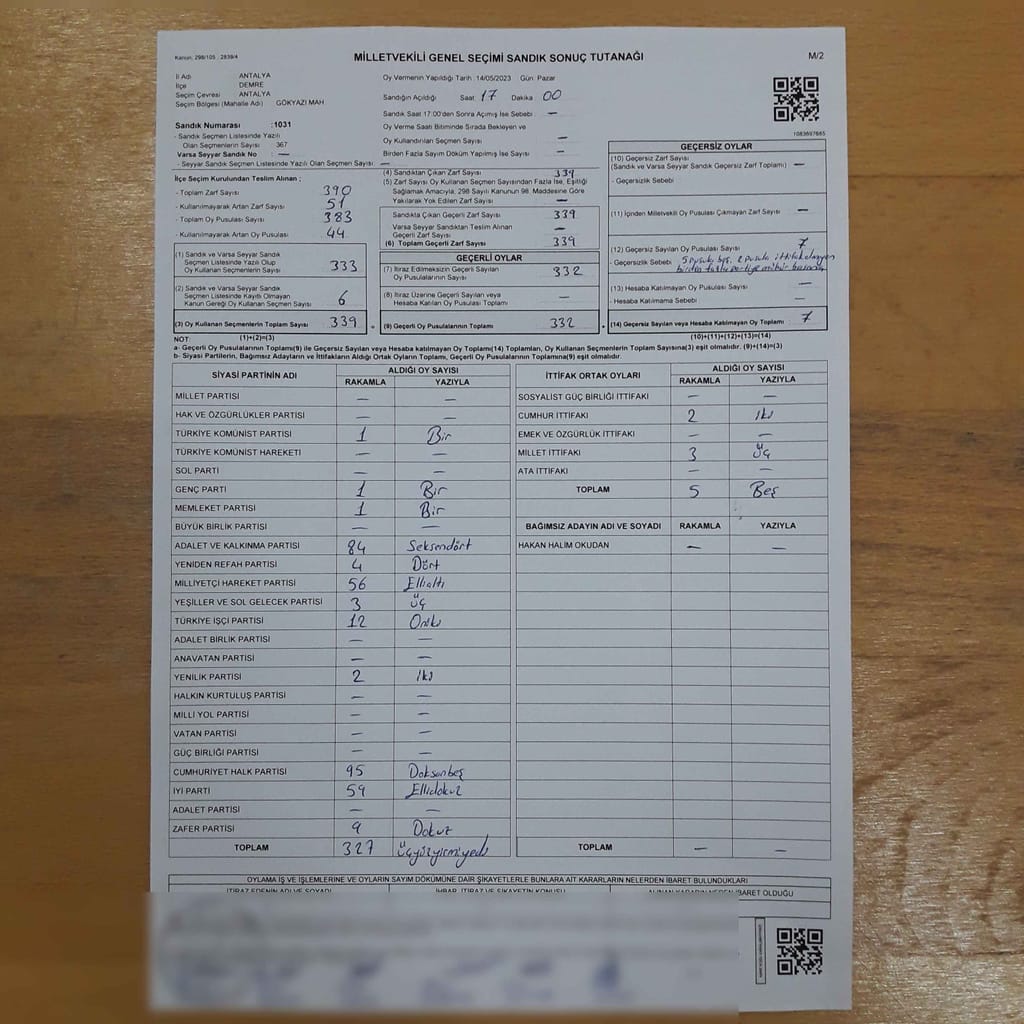 Kanun: 298/105 ; 2839/4
MİLLETVEKİLİ GENEL SEÇİMİ SANDIK SONUÇ TUTANAĞI
M/2
İl Adı ANTALYA
İlçe DEMRE
Seçim Çevresi ANTALYA
Seçim Bölgesi (Mahalle Adı) GÖKYAZI MAH
Sandık Numarası :1031
- Sandık Seçmen Listesinde Yazılı
Olan Seçmenlerin Sayısı 367
Varsa Seyyar Sandık No : —
- Seyyar Sandık Seçmen Listesinde Yazılı Olan Seçmen Sayısı : —
Oy Vermenin Yapıldığı Tarih : 14/05/2023 Gün: Pazar
Sandığın Açıldığı Saat 17 Dakika 00
Sandık Saat 17:00'den Sonra Açımış İse Sebebi : —
Oy Verme Saati Bitiminde Sırada Bekleyen ve
Oy Kullandırılan Seçmen Sayısı —
Birden Fazla Sayım Döküm Yapılmış İse Sayısı —
1083697665
İlçe Seçim Kurulundan Teslim Alınan ;
- Toplam Zarf Sayısı 390
- Kullanılmayarak Artan Zarf Sayısı 51
- Toplam Oy Pusulası Sayısı 383
- Kullanılmayarak Artan Oy Pusulası 44
(1) Sandık ve Varsa Seyyar Sandık
Seçmen Listesinde Yazılı Olup
Oy Kullanan Seçmenlerin Sayısı 333
(2) Sandık ve Varsa Seyyar Sandık
Seçmen Listesinde Kayıtlı Olmayan
Kanun Gereği Oy Kullanan Seçmen Sayısı 6
(3) Oy Kullanan Seçmenlerin Toplam Sayısı 339
(4) Sandıktan Çıkan Zarf Sayısı 339
(5) Zarf Sayısı Oy Kullanan Seçmen Sayısından Fazla İse, Eşitliği
Sağlamak Amacıyla, 298 Sayılı Kanunun 98. Maddesine Göre
Yakılarak Yok Edilen Zarf Sayısı —
Sandıkla Çıkan Geçerli Zarf Sayısı 339
Varsa Seyyar Sandıktan Teslim Alınan
Geçerli Zarf Sayısı —
(6) Toplam Geçerli Zarf Sayısı 339
GEÇERLİ OYLAR
(7) İtiraz Edilmeksizin Geçerli Sayılan
Oy Pusulalarının Sayısı 332
(8) İtiraz Üzerine Geçerli Sayılan veya
Hesaba Katılan Oy Pusulası Toplamı —
(9) Geçerli Oy Pusulalarının Toplamı 332
GEÇERSİZ OYLAR
(10) Geçersiz Zarf Sayısı
(Sandık ve Varsa Seyyar Sandık Geçersiz Zarf Toplamı) —
- Geçersizlik Sebebi
(11) İçinden Milletvekili Oy Pusulası Çıkmayan Zarf Sayısı —
(12) Geçersiz Sayılan Oy Pusulası Sayısı 7
- Geçersizlik Sebebi : 5 pusula boş, 2 pusula ittifak olmayan
birden fazla partiye mühür basılmış
(13) Hesaba Katılmayan Oy Pusulası Sayısı —
- Hesaba Katılmama Sebebi —
(14) Geçersiz Sayılan veya Hesaba Katılmayan Oy Toplamı 7
NOT: (1)+(2)=(3) (10)+(11)+(12)+(13)=(14)
a- Geçerli Oy Pusulalarının Toplamı(9) ile Geçersiz Sayılan veya Hesaba Katılmayan Oy Toplamı(14) Toplamları, Oy Kullanan Seçmenlerin Toplam Sayısına(3) eşit olmalıdır. (9)+(14)=(3)
b- Siyasi Partilerin, Bağımsız Adayların ve İttifakların Aldığı Ortak Oyların Toplamı, Geçerli Oy Pusulalarının Toplamına(9) eşit olmalıdır.
SİYASİ PARTİNİN ADI ALDIĞI OY SAYISI
RAKAMLA YAZIYLA
MİLLET PARTİSİ — —
HAK VE ÖZGÜRLÜKLER PARTİSİ — —
TÜRKİYE KOMÜNİST PARTİSİ 1 Bir
TÜRKİYE KOMÜNİST HAREKETİ — —
SOL PARTİ — —
GENÇ PARTİ 1 Bir
MEMLEKET PARTİSİ 1 Bir
BÜYÜK BİRLİK PARTİSİ — —
ADALET VE KALKINMA PARTİSİ 84 Seksendört
YENİDEN REFAH PARTİSİ 4 Dört
MİLLİYETÇİ HAREKET PARTİSİ 56 Ellialtı
YEŞİLLER VE SOL GELECEK PARTİSİ 3 üç
TÜRKİYE İŞÇİ PARTİSİ 12 Oniki
ADALET BİRLİK PARTİSİ — —
ANAVATAN PARTİSİ — —
YENİLİK PARTİSİ 2 iki
HALKIN KURTULUŞ PARTİSİ — —
MİLLİ YOL PARTİSİ — —
VATAN PARTİSİ — —
GÜÇ BİRLİĞİ PARTİSİ — —
CUMHURİYET HALK PARTİSİ 95 Doksanbeş
İYİ PARTİ 59 Ellidokuz
ADALET PARTİSİ — —
ZAFER PARTİSİ 9 Dokuz
TOPLAM 327 üçyüzyirmiyedi
İTTİFAK ORTAK OYLARI ALDIĞI OY SAYISI
RAKAMLA YAZIYLA
SOSYALİST GÜÇ BİRLİĞİ İTTİFAKI — —
CUMHUR İTTİFAKI 2 iki
EMEK VE ÖZGÜRLÜK İTTİFAKI — —
MİLLET İTTİFAKI 3 üç
ATA İTTİFAKI — —
TOPLAM 5 Beş
BAĞIMSIZ ADAYIN ADI VE SOYADI RAKAMLA YAZIYLA
HAKAN HALİM OKUDAN — —
TOPLAM — —
OYLAMA İŞ VE İŞLEMLERİNE VE OYLARIN SAYIM DÖKÜMÜNE DAİR ŞİKAYETLERLE BUNLARA AİT KARARLARIN NELERDEN İBARET BULUNDUKLARI
İTİRAZ EDENİN ADI VE SOYADI İHBAR, İTİRAZ VE ŞİKAYETİN KONUSU ALINAN KARARIN NEDEN İBARET OLDUĞU